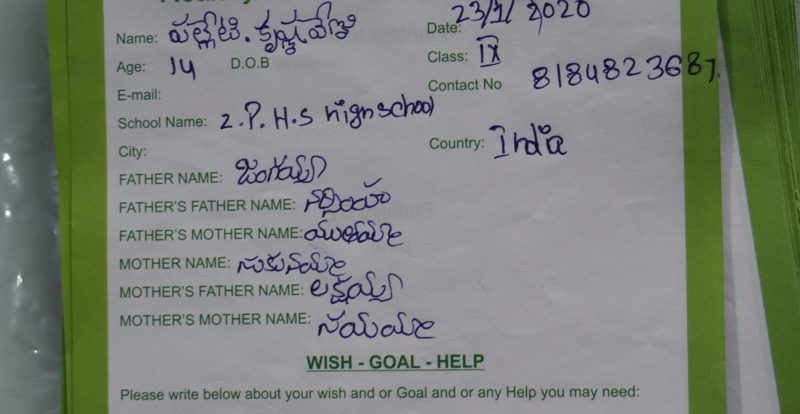 Name: పల్లేటి. కృష్ణవేణి Date: 23/1/2020
Age: 14 D.O.B Class: IX
E-mail: Contact No 8184823687.
School Name: Z.P.H.S highschool
City: Country: India
FATHER NAME: జంగయ్య
FATHER'S FATHER NAME: నర్సింహ
FATHER'S MOTHER NAME:
MOTHER NAME: సుకునమ్మ
MOTHER'S FATHER NAME: లక్ష్మయ్య
MOTHER'S MOTHER NAME:
WISH - GOAL - HELP
Please write below about your wish and or Goal and or any Help you may need: